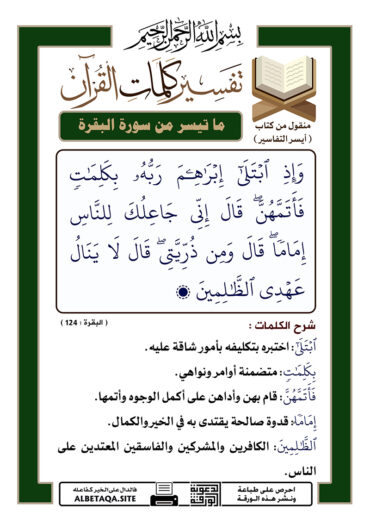 بِسْمِ اللَّهِ الرَّحْمَنِ الرَّحِيمِ
تفسير كلمات القرآن
ما تيسر من سورة البقرة
منقول من كتاب
( أيسر التفاسير )
وَإِذِ ٱبْتَلَىٰٓ إِبْرَٰهِـۧمَ رَبُّهُۥ بِكَلِمَٰتٍ
فَأَتَمَّهُنَّۖ قَالَ إِنِّي جَاعِلُكَ لِلنَّاسِ
إِمَامٗاۖ قَالَ وَمِن ذُرِّيَّتِيۖ قَالَ لَا يَنَالُ
عَهْدِي ٱلظَّٰلِمِينَ
( البقرة : 124 )
شرح الكلمات :
ٱبْتَلَىٰٓ: اختبره بتكليفه بأمور شاقة عليه.
بِكَلِمَٰتٍ: متضمنة أوامر ونواهي.
فَأَتَمَّهُنَّۖ: قام بهن وأداهن على أكمل الوجوه وأتمها.
إِمَامٗا: قدوة صالحة يقتدى به في الخير والكمال.
ٱلظَّٰلِمِينَ: الكافرين والمشركين والفاسقين المعتدين على
الناس.
احرص على طباعة
ونشر هذه الورقة
الدعوية
الورقة
فالدال على الخير كفاعله
ALBETAQA.SITE